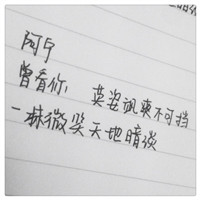 阿宁
曾看你 英姿飒爽不可挡
一抹微笑天地暗淡